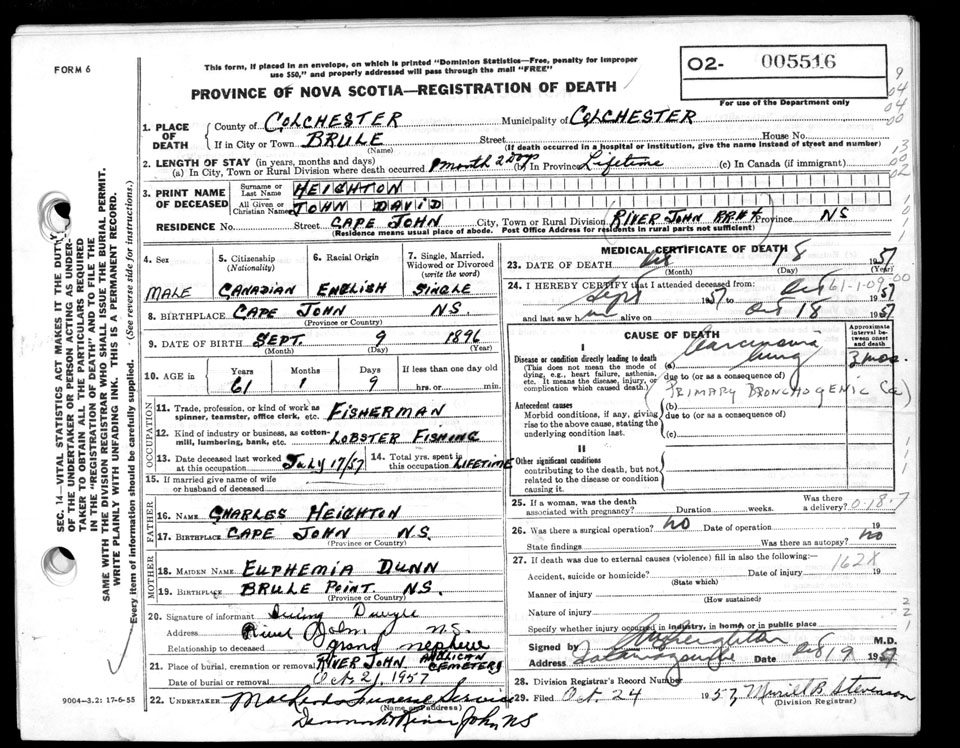 FORM 6
This form, if placed in an envelope, on which is printed "Dominion Statistics—Free, penalty for improper
use $50," and properly addressed will pass through the mail "FREE"
PROVINCE OF NOVA SCOTIA—REGISTRATION OF DEATH
O2- 005516
For use of the Department only
1. PLACE OF DEATH
County of COLCHESTER Municipality of COLCHESTER
If in City or Town BRULE Street House No.
(Name) (If death occurred in a hospital or institution, give the name instead of street and number)
2. LENGTH OF STAY (in years, months and days)
(a) In City, Town or Rural Division where death occurred 1 month 2 Days (b) In Province Lifetime (c) In Canada (if immigrant)
3. PRINT NAME OF DECEASED
Surname or Last Name HEIGHTON
All Given or Christian Names JOHN DAVID
RESIDENCE No. Street CAPE JOHN City, Town or Rural Division (RIVER JOHN RR#1) Province NS
(Residence means usual place of abode. Post Office Address for residents in rural parts not sufficient)
4. Sex
MALE
5. Citizenship (Nationality)
CANADIAN
6. Racial Origin
ENGLISH
7. Single, Married, Widowed or Divorced (write the word)
SINGLE
8. BIRTHPLACE CAPE JOHN N.S.
(Province or Country)
9. DATE OF BIRTH SEPT. 9 1896
(Month) (Day) (Year)
10. AGE in Years Months Days If less than one day old
61 1 9 hrs. or min.
OCCUPATION
11. Trade, profession, or kind of work as
spinner, teamster, office clerk, etc. FISHERMAN
12. Kind of industry or business, as cotton-
mill, lumbering, bank, etc. LOBSTER FISHING
13. Date deceased last worked at this occupation JULY 17/57
14. Total yrs. spent in this occupation LIFETIME
15. If married give name of wife
or husband of deceased
FATHER
16. NAME CHARLES HEIGHTON
17. BIRTHPLACE CAPE JOHN N.S.
(Province or Country)
MOTHER
18. MAIDEN NAME EUPHEMIA DUNN
19. BIRTHPLACE BRULE POINT. N.S.
(Province or Country)
20. Signature of informant
Address River John N.S.
Relationship to deceased grand nephew
21. Place of burial, cremation or removal RIVER JOHN ANGLICAN CEMETERY
Date of burial or removal Oct 21, 1957
22. UNDERTAKER Funeral Service
(Name and address)
River John, NS
MEDICAL CERTIFICATE OF DEATH
23. DATE OF DEATH Oct 18 1957
(Month) (Day) (Year)
24. I HEREBY CERTIFY that I attended deceased from:
Sept 1957 to Oct 1957
and last saw h im alive on Oct 18 1957
61-1-09-00
CAUSE OF DEATH
Approximate interval between onset and death
I
Disease or condition directly leading to death
(This does not mean the mode of
dying, e.g., heart failure, asthenia,
etc. It means the disease, injury, or
complication which caused death.)
(a) Carcinoma lung 3 mos.
due to (or as a consequence of)
(PRIMARY BRONCHOGENIC Ca)
Antecedent causes
Morbid conditions, if any, giving
rise to the above cause, stating the
underlying condition last.
(b)
due to (or as a consequence of)
(c)
II
Other significant conditions
contributing to the death, but not
related to the disease or condition
causing it.
25. If a woman, was the death
associated with pregnancy? Duration weeks. Was there a delivery? 0-18-7
26. Was there a surgical operation? no Date of operation 19
State findings Was there an autopsy? no
27. If death was due to external causes (violence) fill in also the following:—
Accident, suicide or homicide? Date of injury 19
(State which)
162X
Manner of injury
(How sustained)
Nature of injury
Specify whether injury occurred in industry, in home or in public place
Signed by M.D.
Address Tatamagouche Date Oct 19 1957
28. Division Registrar's Record Number
29. Filed Oct. 24 1957, Muriel B. Stevenson
(Division Registrar)
9004—3.2: 17-6-55
SEC. 14—VITAL STATISTICS ACT MAKES IT THE DUTY
OF THE UNDERTAKER OR PERSON ACTING AS UNDER-
TAKER TO OBTAIN ALL THE PARTICULARS REQUIRED
IN THE "REGISTRATION OF DEATH" AND TO FILE THE
SAME WITH THE DIVISION REGISTRAR WHO SHALL ISSUE THE BURIAL PERMIT.
WRITE PLAINLY WITH UNFADING INK. THIS IS A PERMANENT RECORD.
Every item of information should be carefully supplied. (See reverse side for instructions.)